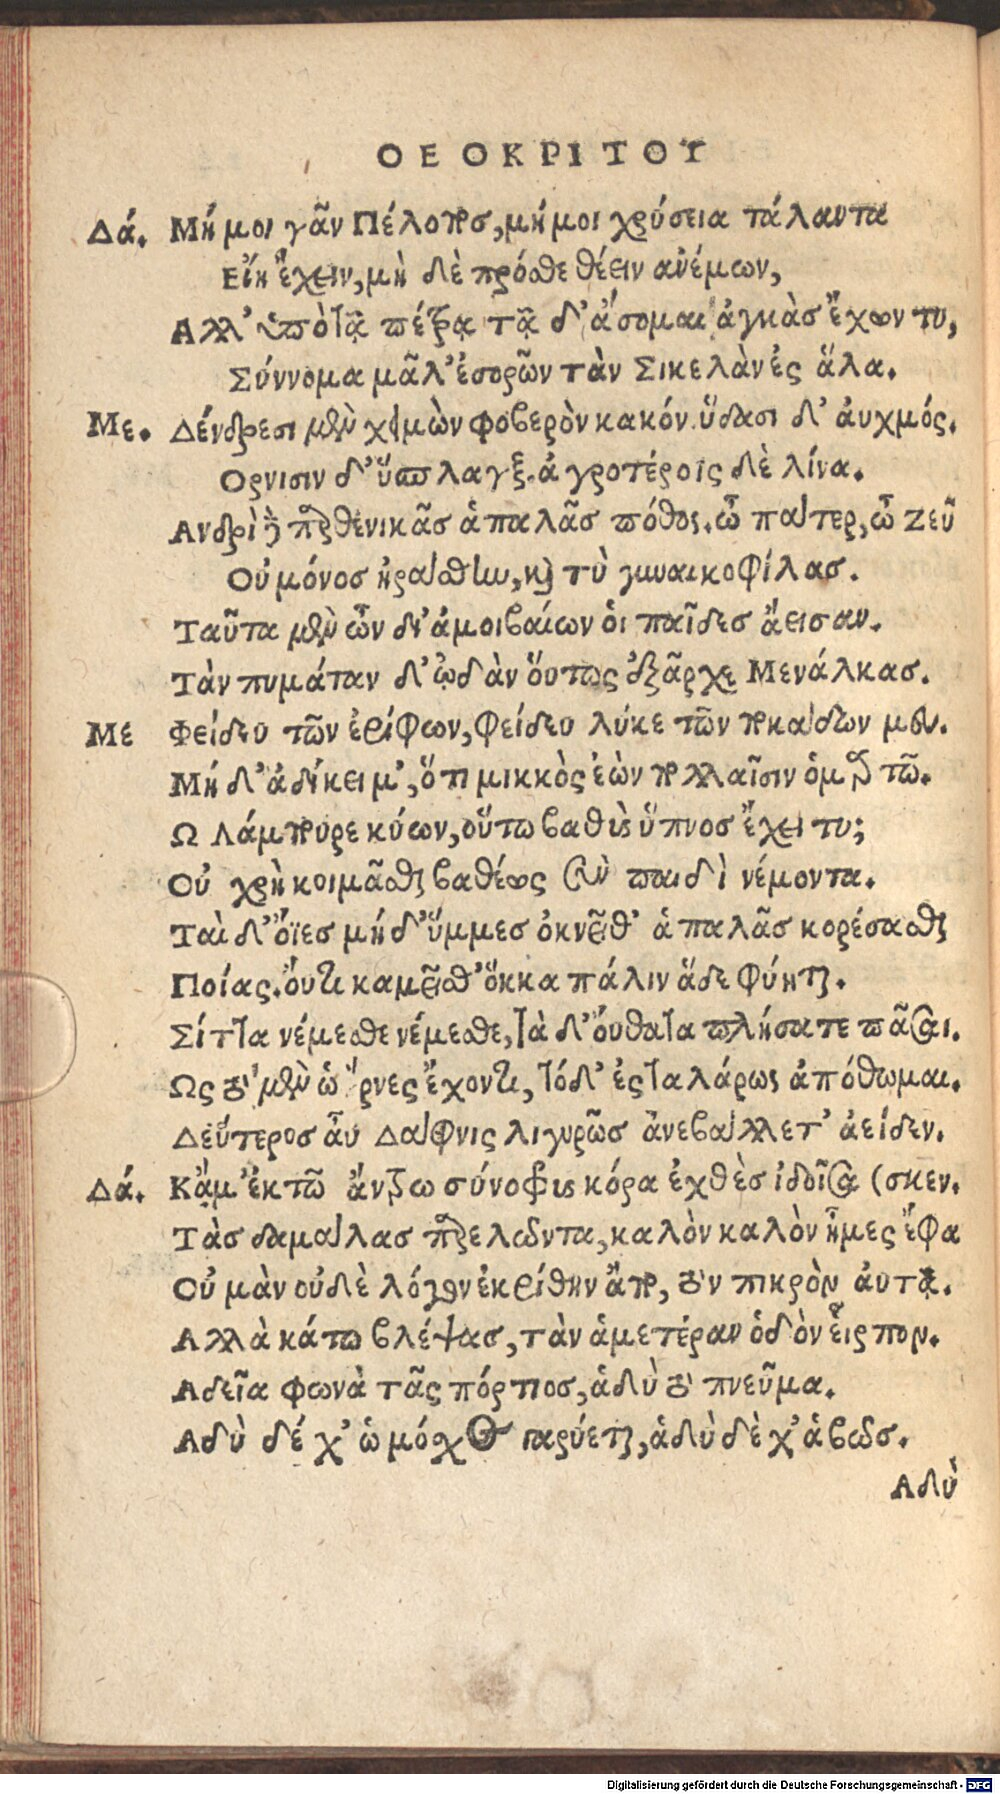 ΘΕΟΚΡΙΤΟΥ
Δά. Μή μοι γᾶν Πέλοπος, μή μοι χρύσεια τάλαντα
Εἴη ἔχειν, μὴ δὲ πρόσθε θέειν ἀνέμων,
Αλλ' ὑπὸ τᾷ πέτρᾳ τᾷ δ' ᾄσομαι ἀγκὰς ἔχων τυ,
Σύννομα μᾶλ' ἐσορῶν τὰν Σικελὰν ἐς ἅλα.
Με. Δένδρεσι μὲν χειμὼν φοβερὸν κακόν. ὕδασι δ' ἀυχμός.
Ορνισιν δ' ὕσπλαγξ. ἀγροτέροις δὲ λίνα.
Ανδρὶ δὲ παρθενικᾶς ἁπαλᾶς πόθος. ὦ πάτερ, ὦ Ζεῦ
Οὐ μόνος ἠράσθην, καὶ τὺ γυναικοφίλας.
Ταῦτα μὲν ὦν δι' ἀμοιβαίων ὁι παῖδες ἄεισαν.
Τὰν πυμάταν δ' ᾠδὰν ὅυτως ἐξᾶρχε Μενάλκας.
Με Φείδευ τῶν ἐρίφων, φείδευ λύκε τῶν τοκάδων μου.
Μή δ' ἀδίκει μ', ὅτι μικκὸς ἐὼν πολλαῖσιν ὁμαρτῶ.
Ω Λάμπουρε κύων, οὕτω βαθὺς ὕπνος ἔχει τυ;
Οὐ χρὴ κοιμᾶσθαι βαθέως σὺν παιδὶ νέμοντα.
Ταὶ δ' ὄϊες μή δ' ὔμμες ὀκνεῖθ' ἁπαλᾶς κορέσασθαι
Ποίας. ὄυτι καμεῖσθ' ὅκκα πάλιν ἅδε φύηται.
Σίττα νέμεσθε νέμεσθε, τὰ δ' ὄυθατα πλήσατε πᾶσαι.
Ως τὸ μὲν ὡ ῎ρνες ἔχοντι, τό δ' ἐς ταλάρως ἀπόθωμαι.
Δεύτερος ἆυ Δάφνις λιγυρῶς ἀνεβάλλετ' ἀείδεν.
Δά. Κᾄμ' ἐκ τῶ ἄντρω σύνοφρυς κόρα ἐχθὲς ἰδοῖσα (σκεν.
Τὰς δαμάλας παρελῶντα, καλὸν καλὸν ἦμες ἔφα
Οὐ μὰν οὐδὲ λόγων ἐκρίθην ἄπο, τὸν πικρὸν ἀυτᾷ.
Αλλὰ κάτω βλέψας, τὰν ἁμετέραν ὁδὸν εἷρπον.
Αδεῖα φωνὰ τᾶς πόρτιος, ἁδὺ τὸ πνεῦμα.
Αδὺ δέ χ' ὡ μόσχος γαρύεται, ἁδὺ δὲ χ' ἁ βῶς.
Αδὺ
Digitalisierung gefördert durch die Deutsche Forschungsgemeinschaft - DFG